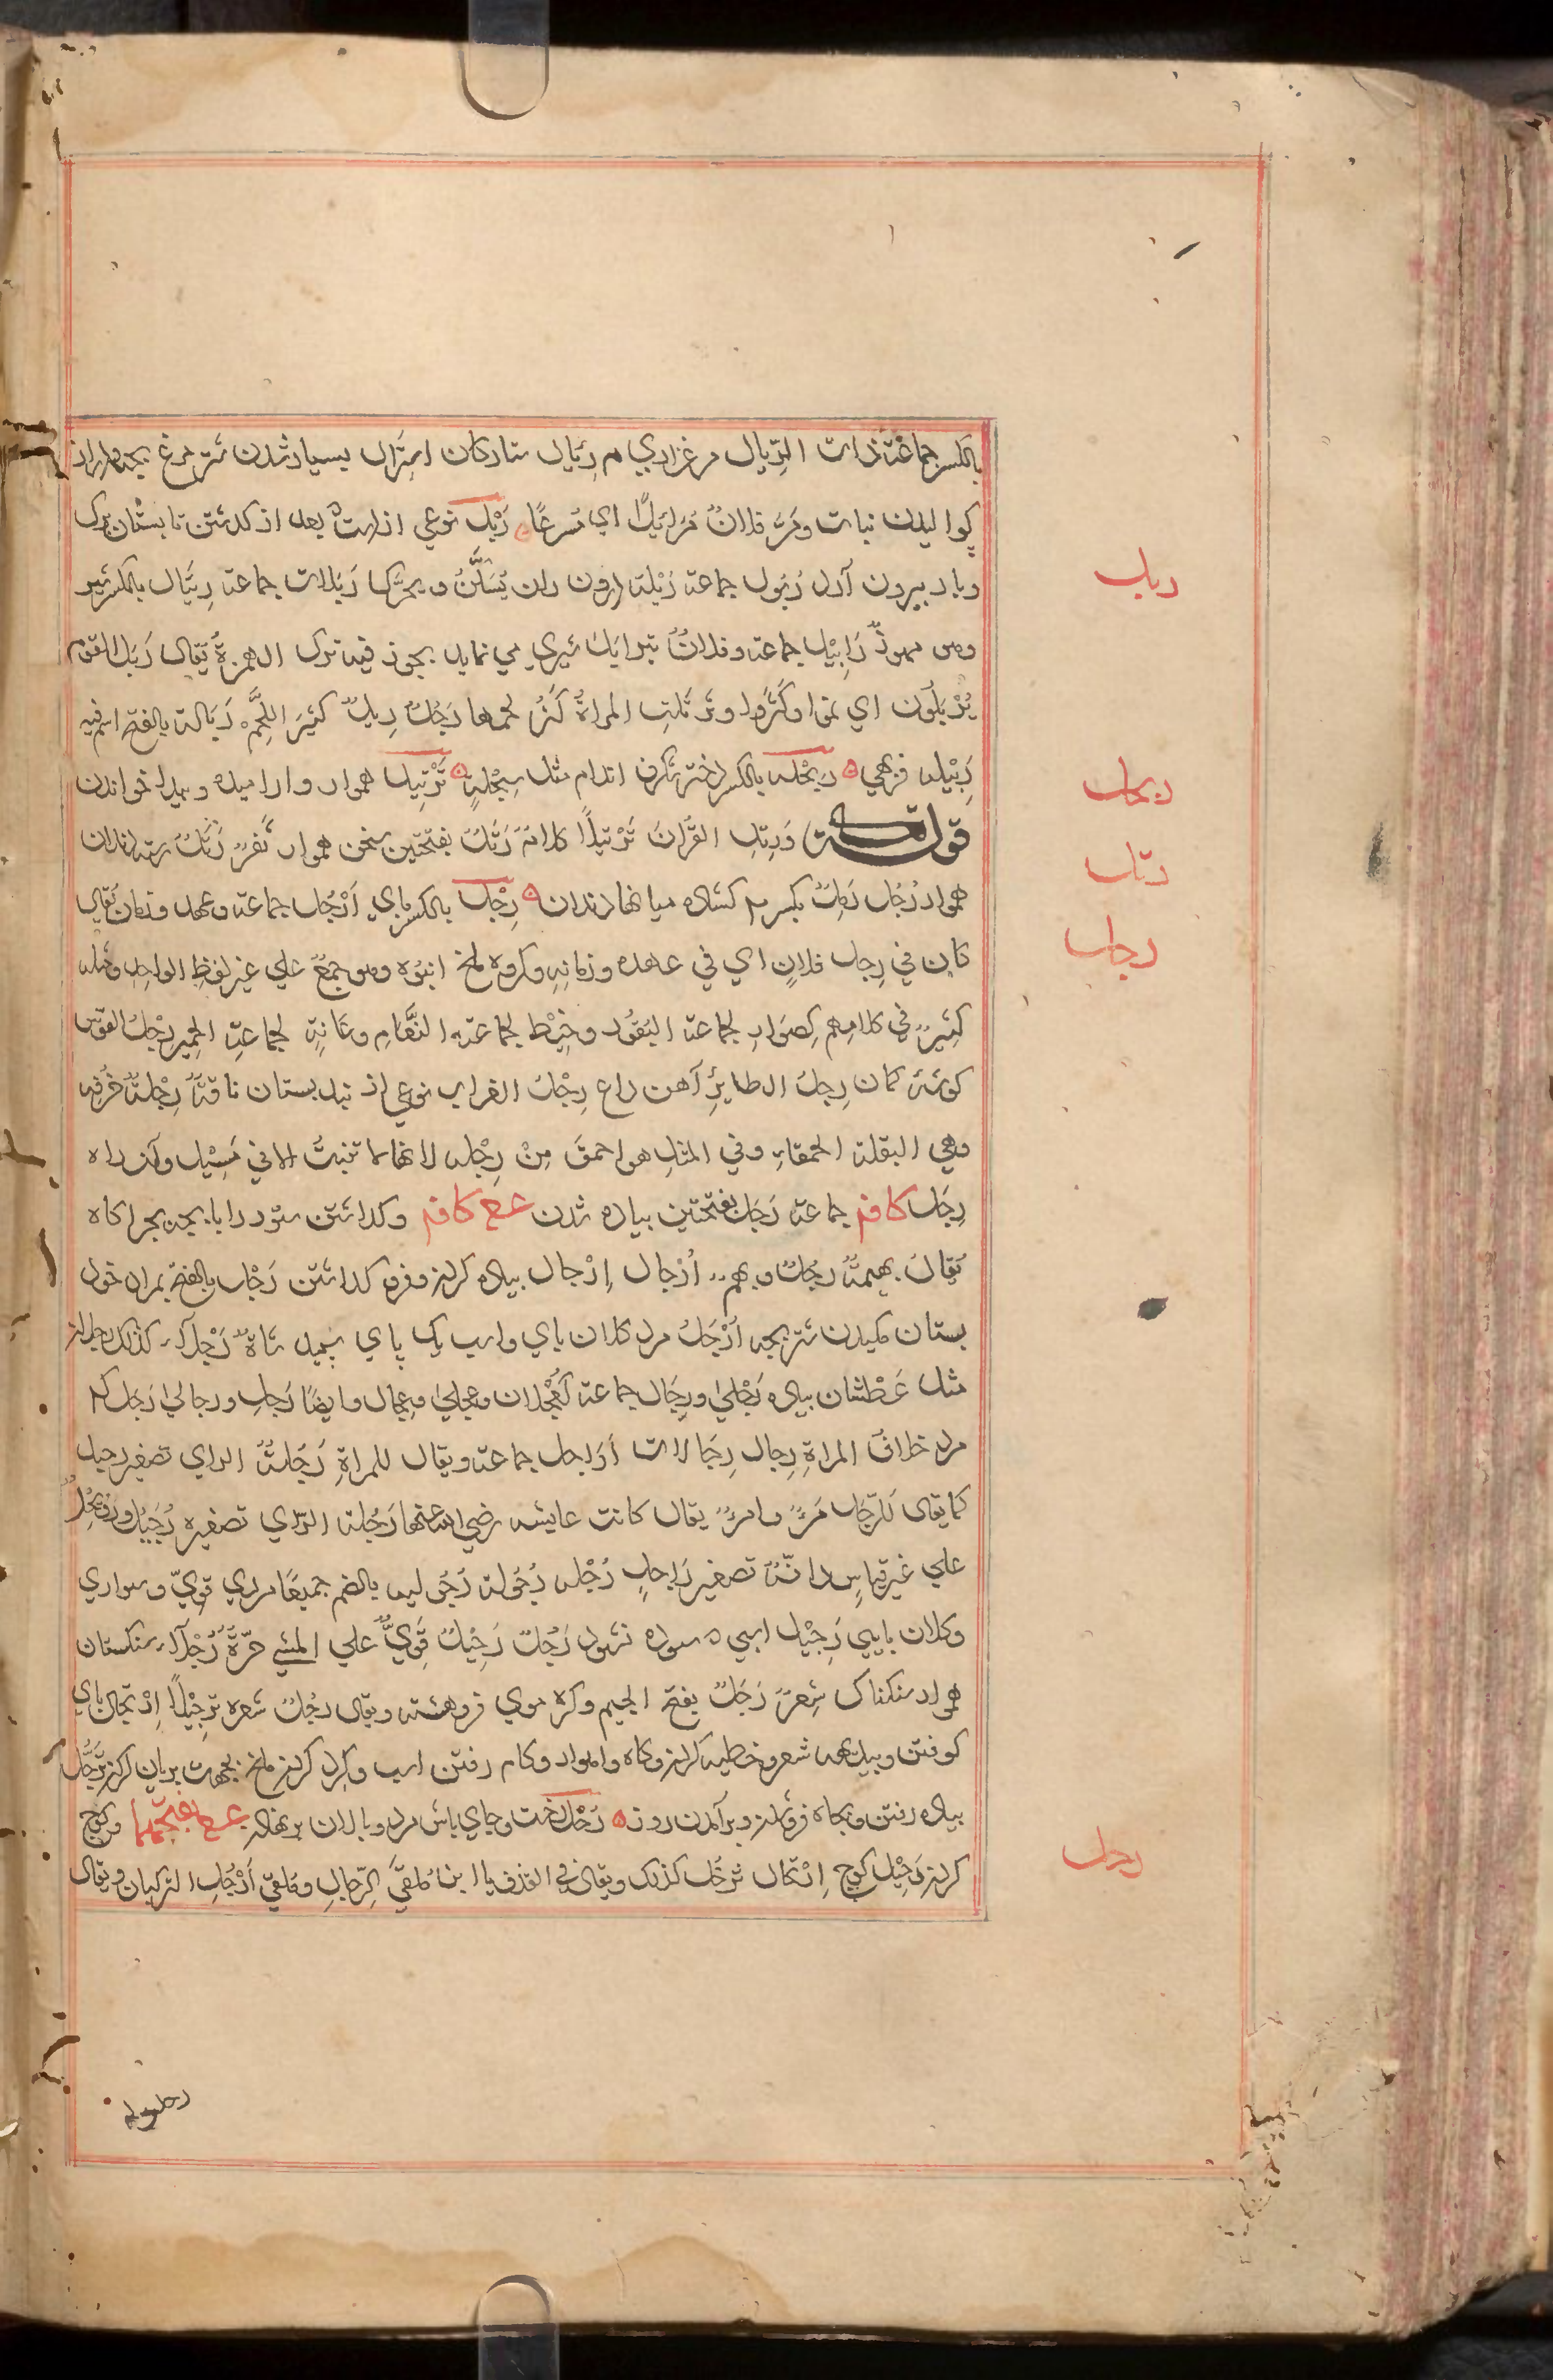 بالكسر جماعة ذات الرئال مرغزاري م رئال ستاركان استرال بسيار شدن شتر مرغ بچه
كواليدن نبات ومَرَّ فلانٌ مُرَائِلًا اي مُسرعًا ربل نوعي از درخت بعد از كذشتن تابستان برك
وبار بيرون آرد رُبُول جماعة رَبْلة درون ران يُسَكَّنُ و يحرّك رَبَلات جماعة رِيبَال بالكسر شير
وهو مهموز رَابيل جماعة وفلانٌ يترابل شيري مي نمايد يجوز فيه ترك الهمزة يقال رَبَل القوم
يَرْبُلُون اي نموا وكثروا وتربّلت المراةُ كَثُر لحمها رَجُلٌ رَبِلٌ كثير اللحم رَبَالة بالفتح اسم فيه
رَبِيْله فربهي رِبَحْله بالكسر دختر شكرف اندام مثل سِبَحْلة تَرْتِيل هموار و اراميده و پيدا خواندن
قوله تعالى وَرَتِّلِ القُرْآنَ تَرْتِيلًا كلامٌ رَتَلٌ بفتحتين سخن هموار ثَغرٌ رَتَلٌ رسته دندان
هموار رَجُل رَتِلٌ بكسر م كشاده ميانها دندان رِجْل بالكسر پاي اَرْجُل جماعة وعهد وزمان يقال
كان في رِجل فلانٍ اي في عهده وزمانِهِ وكروه ملخ انبوه وهو جمعٌ علي غير لفظِ الواحد ومثله
كثيرٌ في كلامهم كصُوَارٍ لجماعة البَقَر و خَيْط لجماعة النَّعَام وعَانةٍ لجماعة الحمير رِجلُ القوس
كوشهٔ كمان رِجلُ الطايرِ آهن داغ رِجْلُ الغراب نوعي از بند پستان ناقه رِجْلةٌ خرفه
وهي البقلة الحمقاء وفي المثل هو احمق مِنْ رِجْله لانها لا تنبتُ الا في مَسِيل و آب راه
رِجَل كا فم جماعة رَجَل بفتحتين پياده شدن ع ع كا فم و كذاشتن ستور را با بچه بچراكاه
يقال بهيمةٌ رَجَلٌ وبهم اَرْجَال اِرْجال پياده كردن و فرو كذاشتن رَجْل بالفتح بمراد خود
پستان مكيدن شتر بچه اَرْجَلُ مرد كلان پاي واسب يك پاي سپيد شاةٌ رَجْلَاء كذلك رجلان
مثل عَطْشان پياده رَجْلَى ورِجَال جماعة كعَجْلان وعجلى وعجال وايضًا رَجِل ورجالى رَجُل م
مرد خلاف المراةِ رِجال رِجَالات اَرَاجل جماعة ويقال للمراةِ رَجُلةٌ الراي تصغير رجيل
كما يقال للرّجل مَرءٌ وامرءٌ يقال كانت عايشه رضي الله عنها رَجُلة الرّاي تصغيره رُجَيْل ورويجلٌ
علي غير قياس كانّهُ تصغير رَاجل رُجْله رُجُولة رُجُوليه بالضم جميعًا مردي قويّ وسواري
وكلان پايي رَجِيْل اسبي سوده نشود رَجُلٌ رَجِيْلٌ قَوِيٌّ علي المشي حرّةٌ رَجْلَاء سنكستان
هموار سنكناك شعرٌ رَجَلٌ بفتح الجيم وكره موي فروهشته ويقال رجّل شعره ترجيلًا اِرْتجال پاي
كوفتن وبديهه شعر وخطبه كردن وكاه وامواد وكام رفتن اسپ وكرد كردن ملخ بجهت بريان كردن تَرَجُّل
پياده رفتن و بچاه فروشدن و بر آمدن روز رَحْل رخت و جاي باش مرد و پالان بر نهادن ع ع بفتحهما و كوچ
كردن رَحِيْل كوچ اِرْتحال تَرَحُّل كذلك ويقال في القذف يا ابن مُلقَى الرّحالِ ومُلقى اَرْحُلِ الركبان ويقال
ربل
ربحل
رتل
رجل
رحل